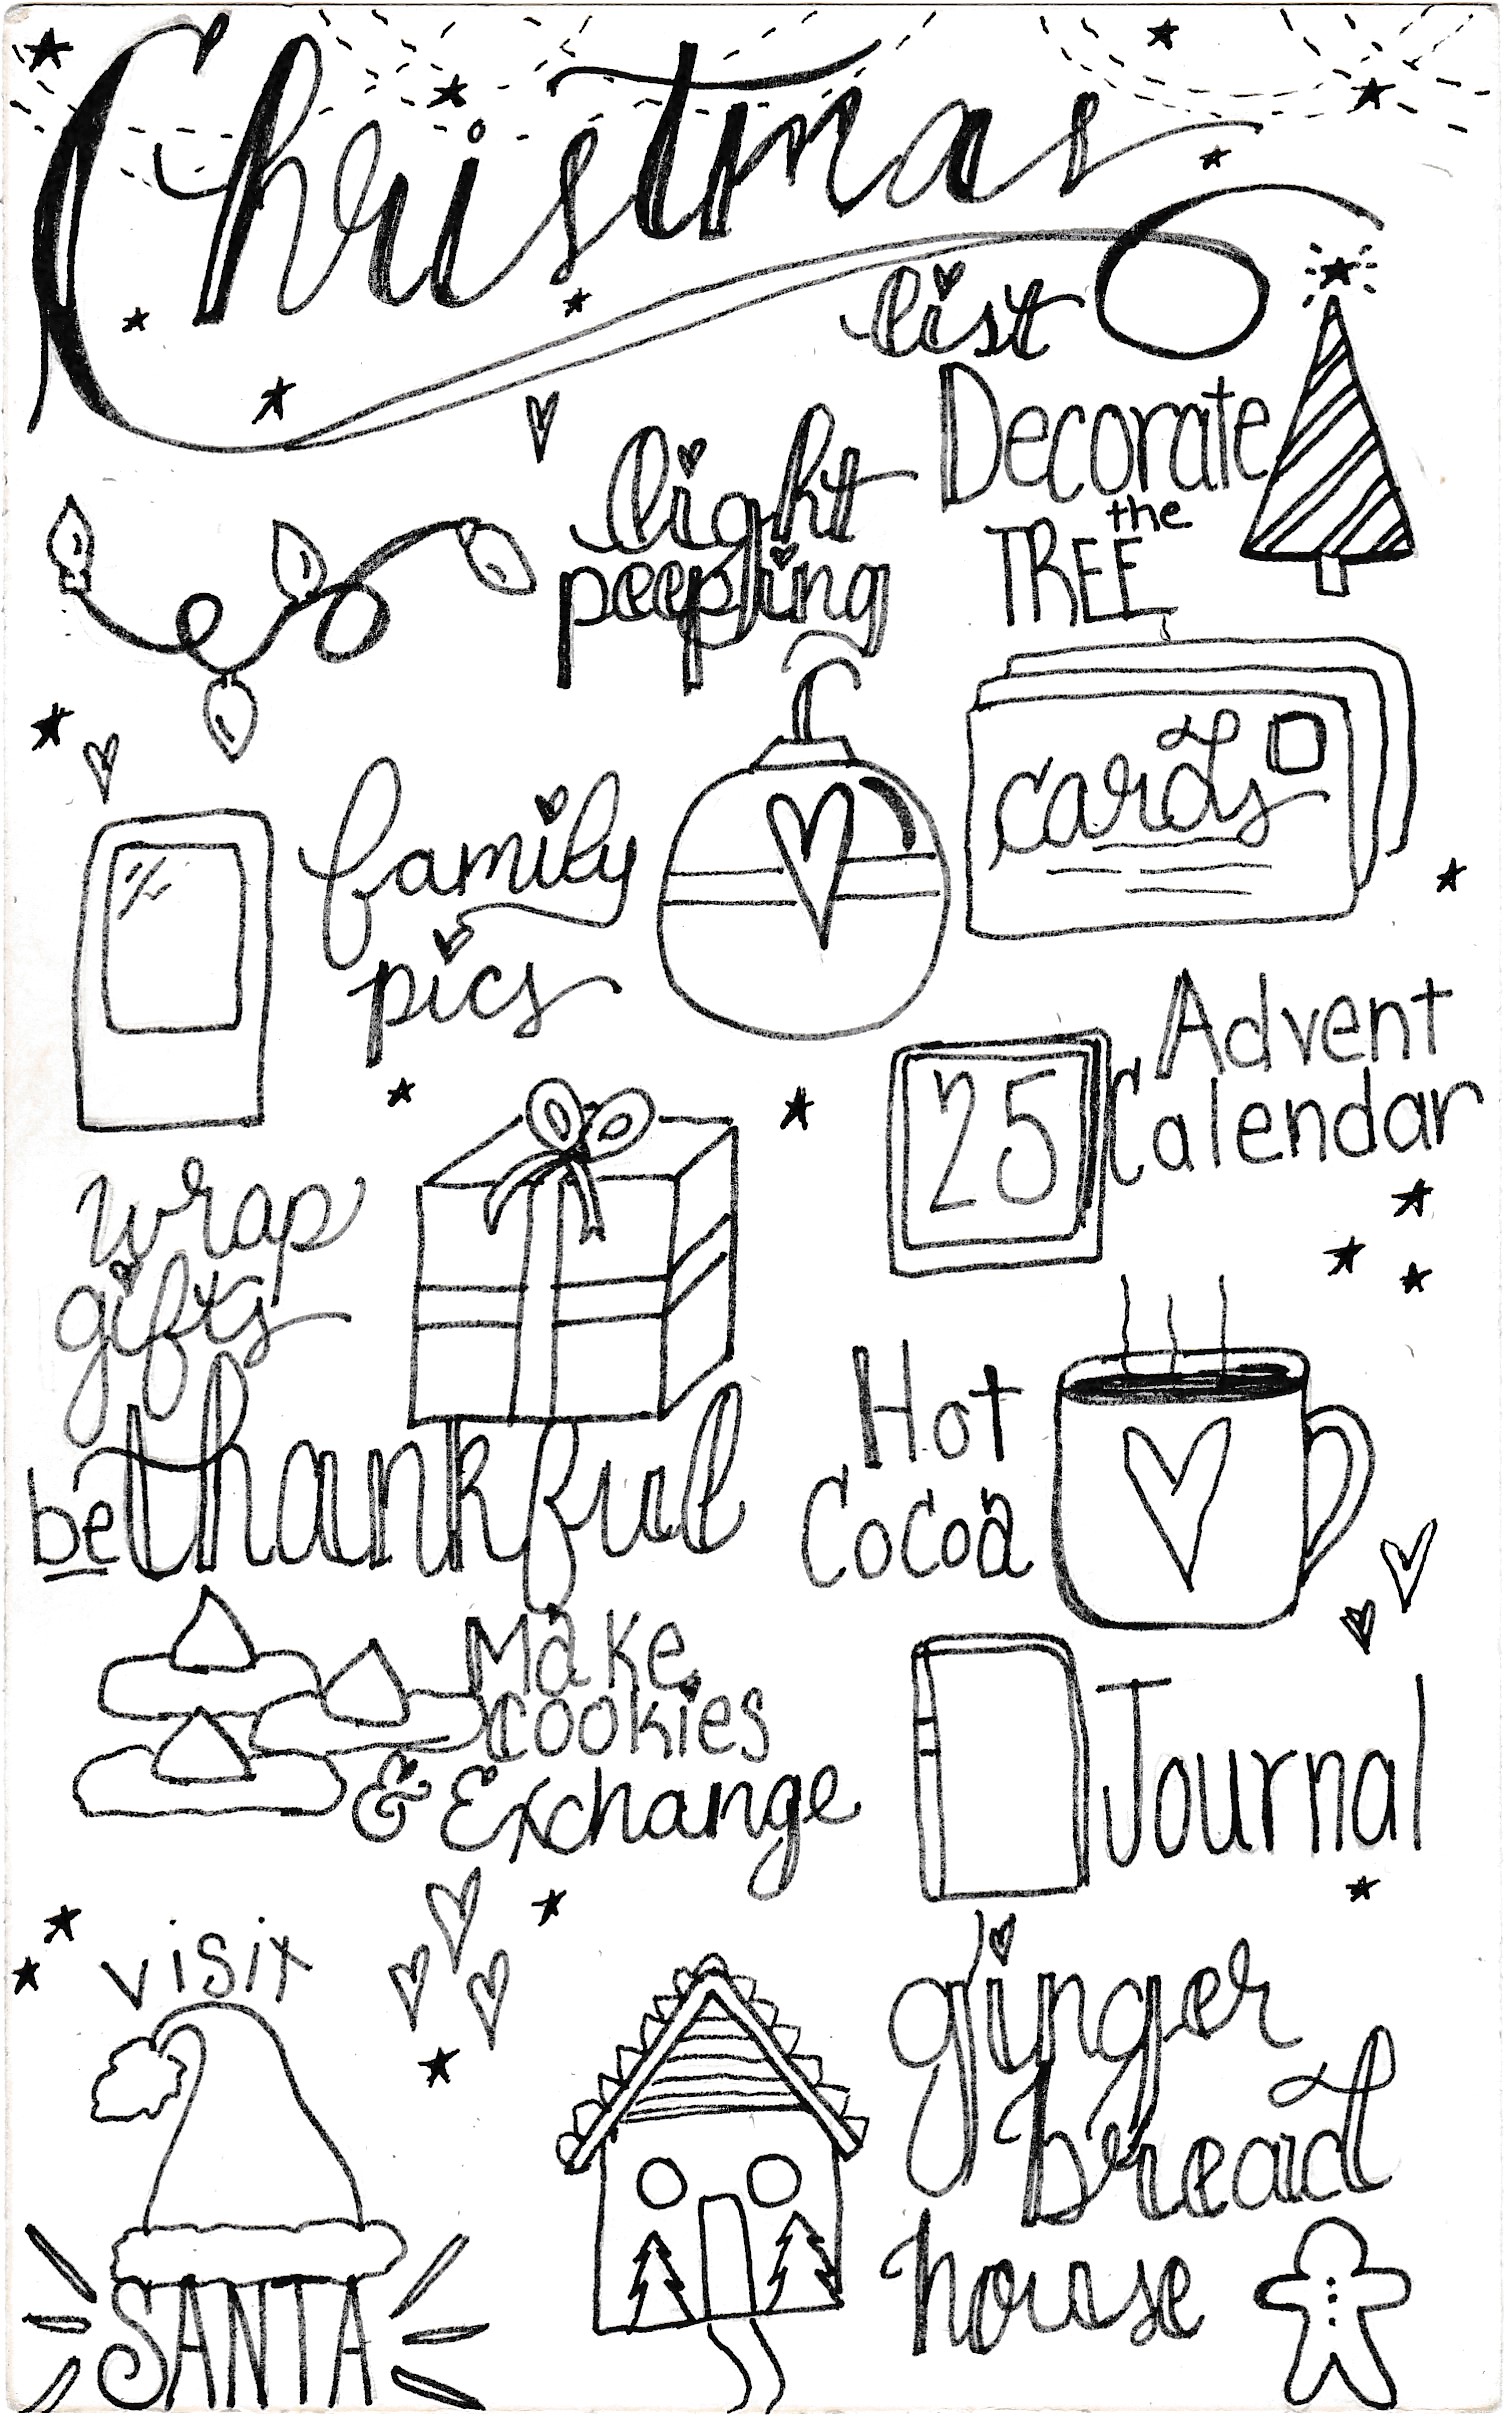 Christmas
list
Decorate
the
TREE
light
peeping
cards
family
pics
Advent
25
Calendar
wrap
gifts
Hot
Cocoa
be thankful
Make
cookies
& Exchange
Journal
visit
SANTA
ginger
bread
house